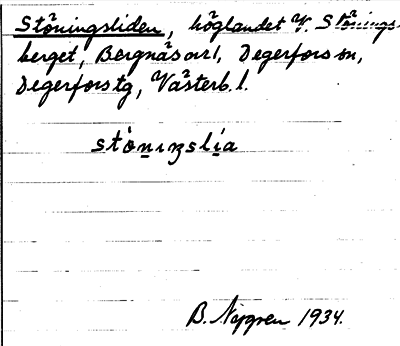 Stöningsliden, höglandet V. Stönings-
berget, Bergnäs ovrl, Degerfors sn,
Degerfors tg, Västerb. l.
stöniŋslía
B. Nygren 1934.